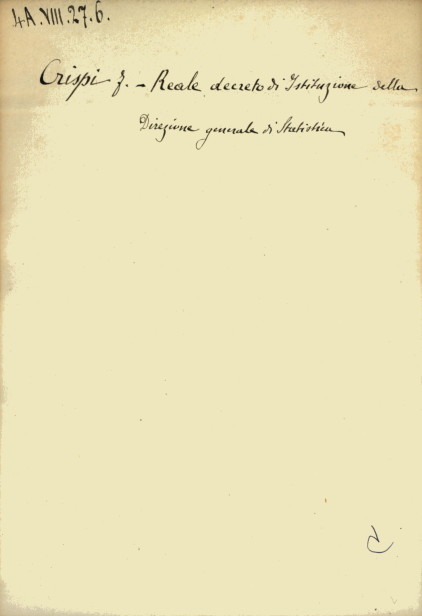 4A.VIII.27.6.
Crispi F. – Reale decreto di Istituzione della
Direzione generale di Statistica